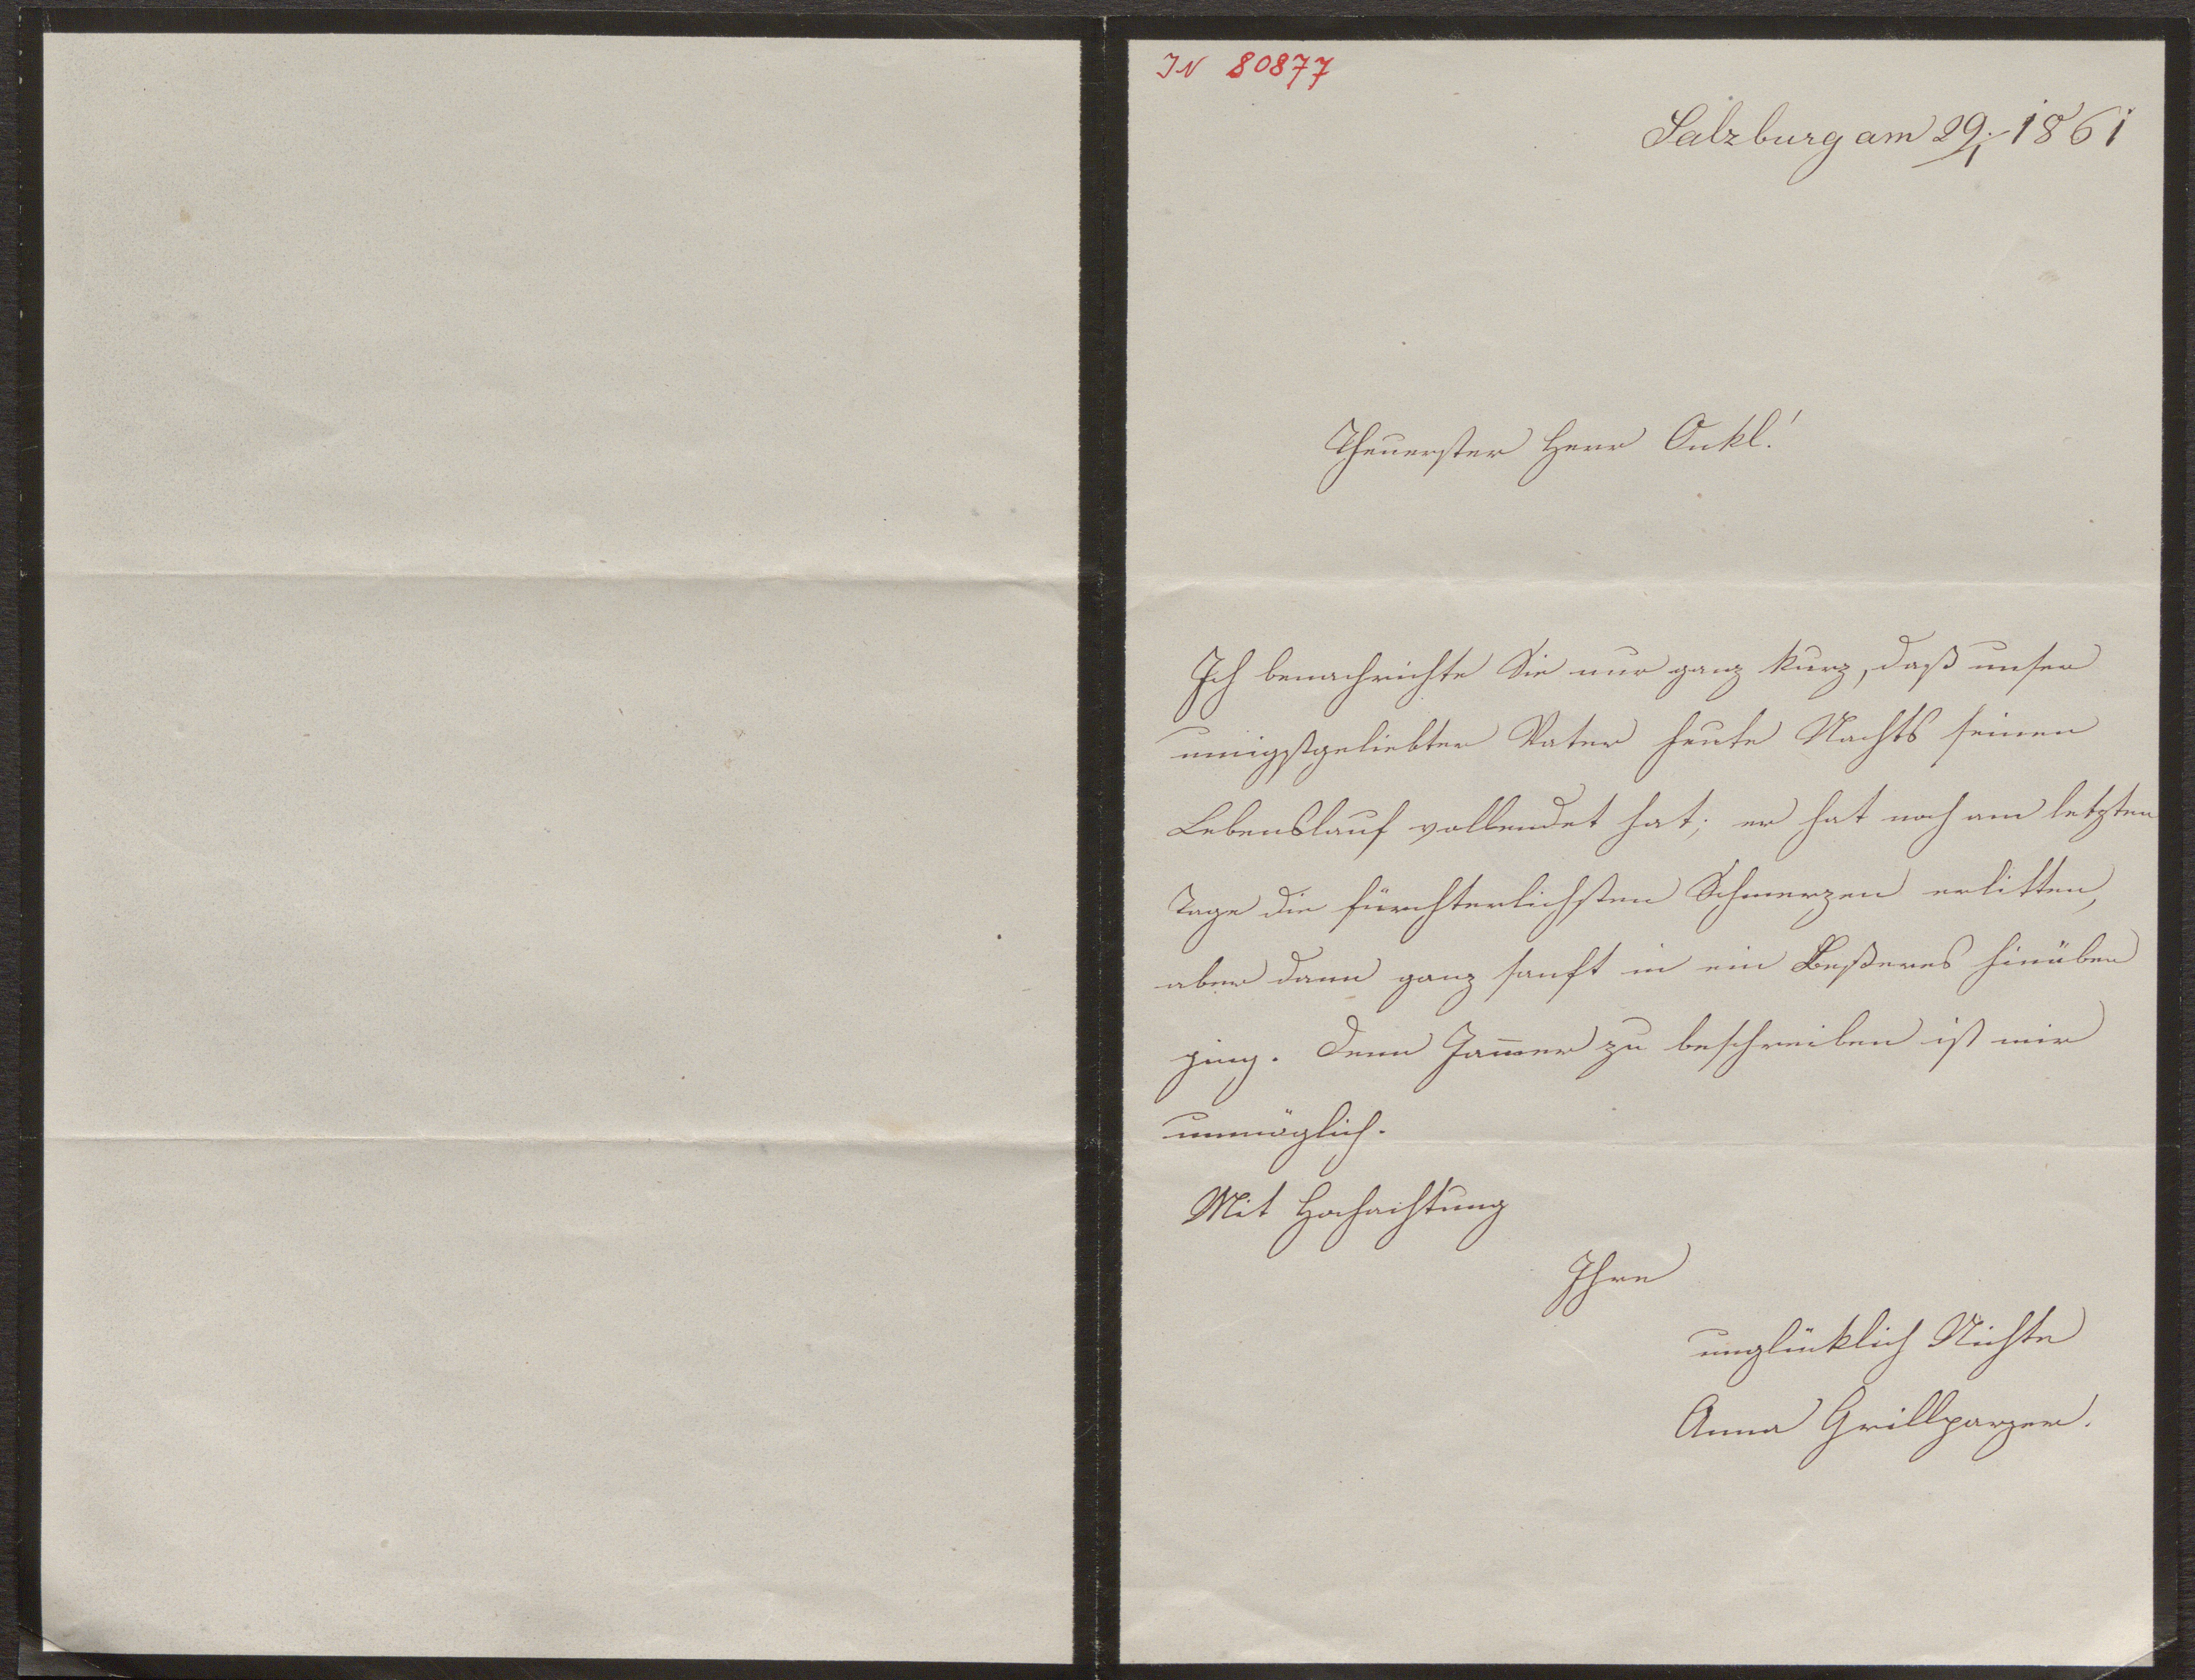 IN 80877
Salzburg am 29/1 1861
Theuerster Herr Onkl!
Ich benachrichte Sie nur ganz kurz, daß unser
innigstgeliebter Vater heute Nachts seinen
Lebenslauf vollendet hat; er hat noch am letzten
Tage die fürchterlichsten Schmerzen erlitten,
aber dann ganz sanft in ein Beßeres hinüber
ging. Denn Jam̅er zu beschreiben ist mir
unmöglich.
Mit Hochachtung
Ihre
unglücklich Nichte
Anna Grillparzer.